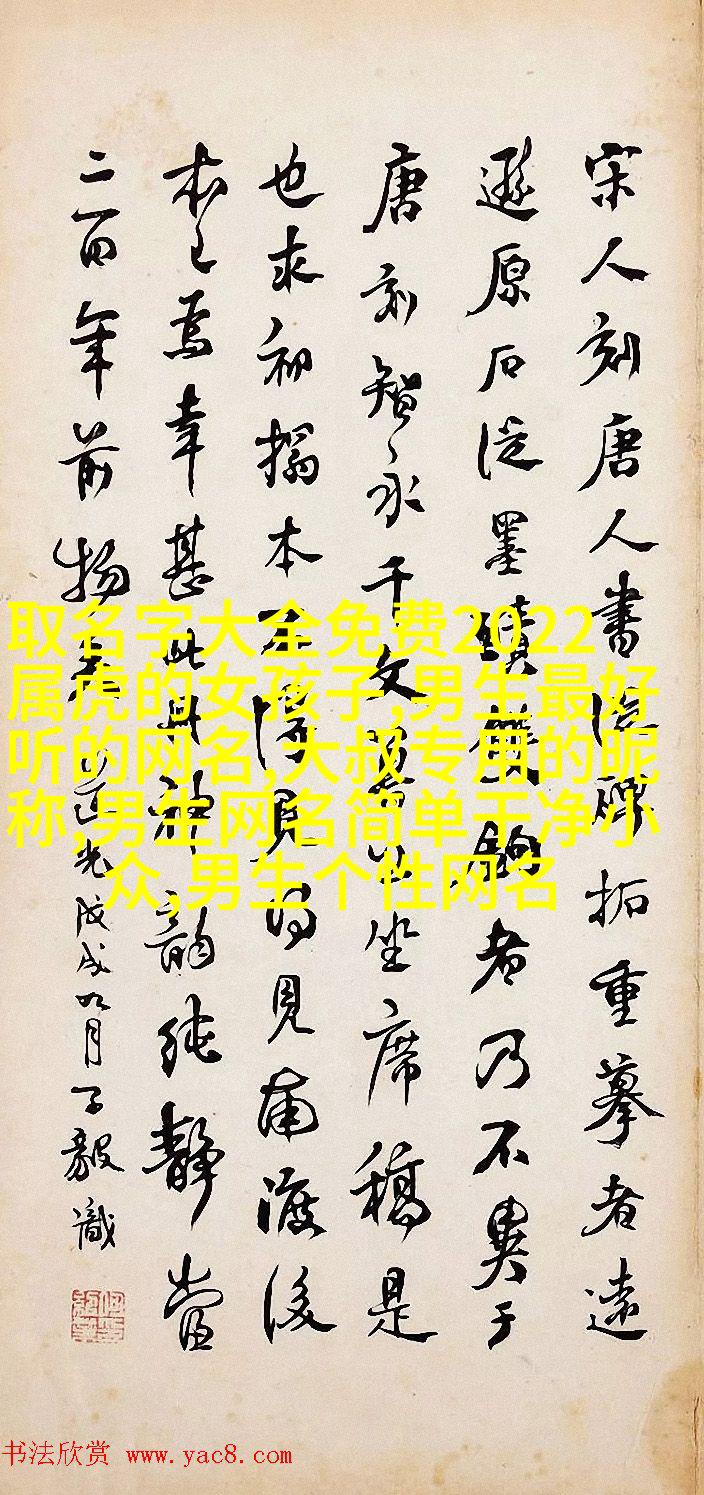 宋人刻唐人書從碑拓重摹者遠
遜原石從墨蹟鉤者乃不異于
唐刻智永千文坐席稿是
也求初搨本不得見得見南渡後
本已為幸甚此冊神韻純靜當
年前物矣道光戊戌九月子毅識
取名字大全免费2022
属虎的女孩子,男生最好
听的网名,大叔专用的昵
称,男生网名简单干净小
众,男生个性网名
书法欣赏 www.yac8.com